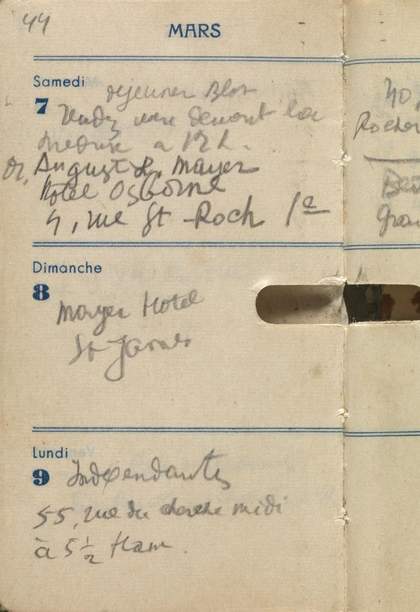 44
MARS
Samedi
7 déjeuner Blot
Rendez vous devant la
méduse à 12 h.
Dr, August L. Mayer
Hotel Osborne
4, rue St-Roch 1e
Dimanche
8
Mayer Hotel
St James
Lundi
9 Indépendants
55, rue du cherche midi
à 5 1/2
40
Rocher